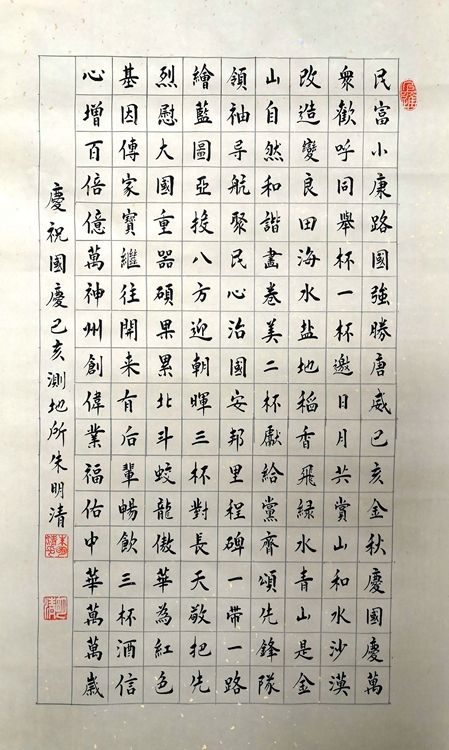 民富小康路國強勝唐威己亥金秋慶國慶萬
衆歡呼同舉杯一杯邀日月共賞山和水沙漠
改造變良田海水盐地稻香飛緑水青山是金
山自然和諧畫卷美二杯獻給黨齊頌先鋒隊
領袖导航聚民心治國安邦里程碑一帶一路
繪藍圖亞投八方迎朝暉三杯對長天敬把先
烈慰大國重器碩果累北斗蛟龍傲華為紅色
基因傳家寳繼往開来有后輩暢飲三杯酒信
心增百倍億萬神州創偉業福佑中華萬萬歲
慶祝國慶己亥測地所朱明清